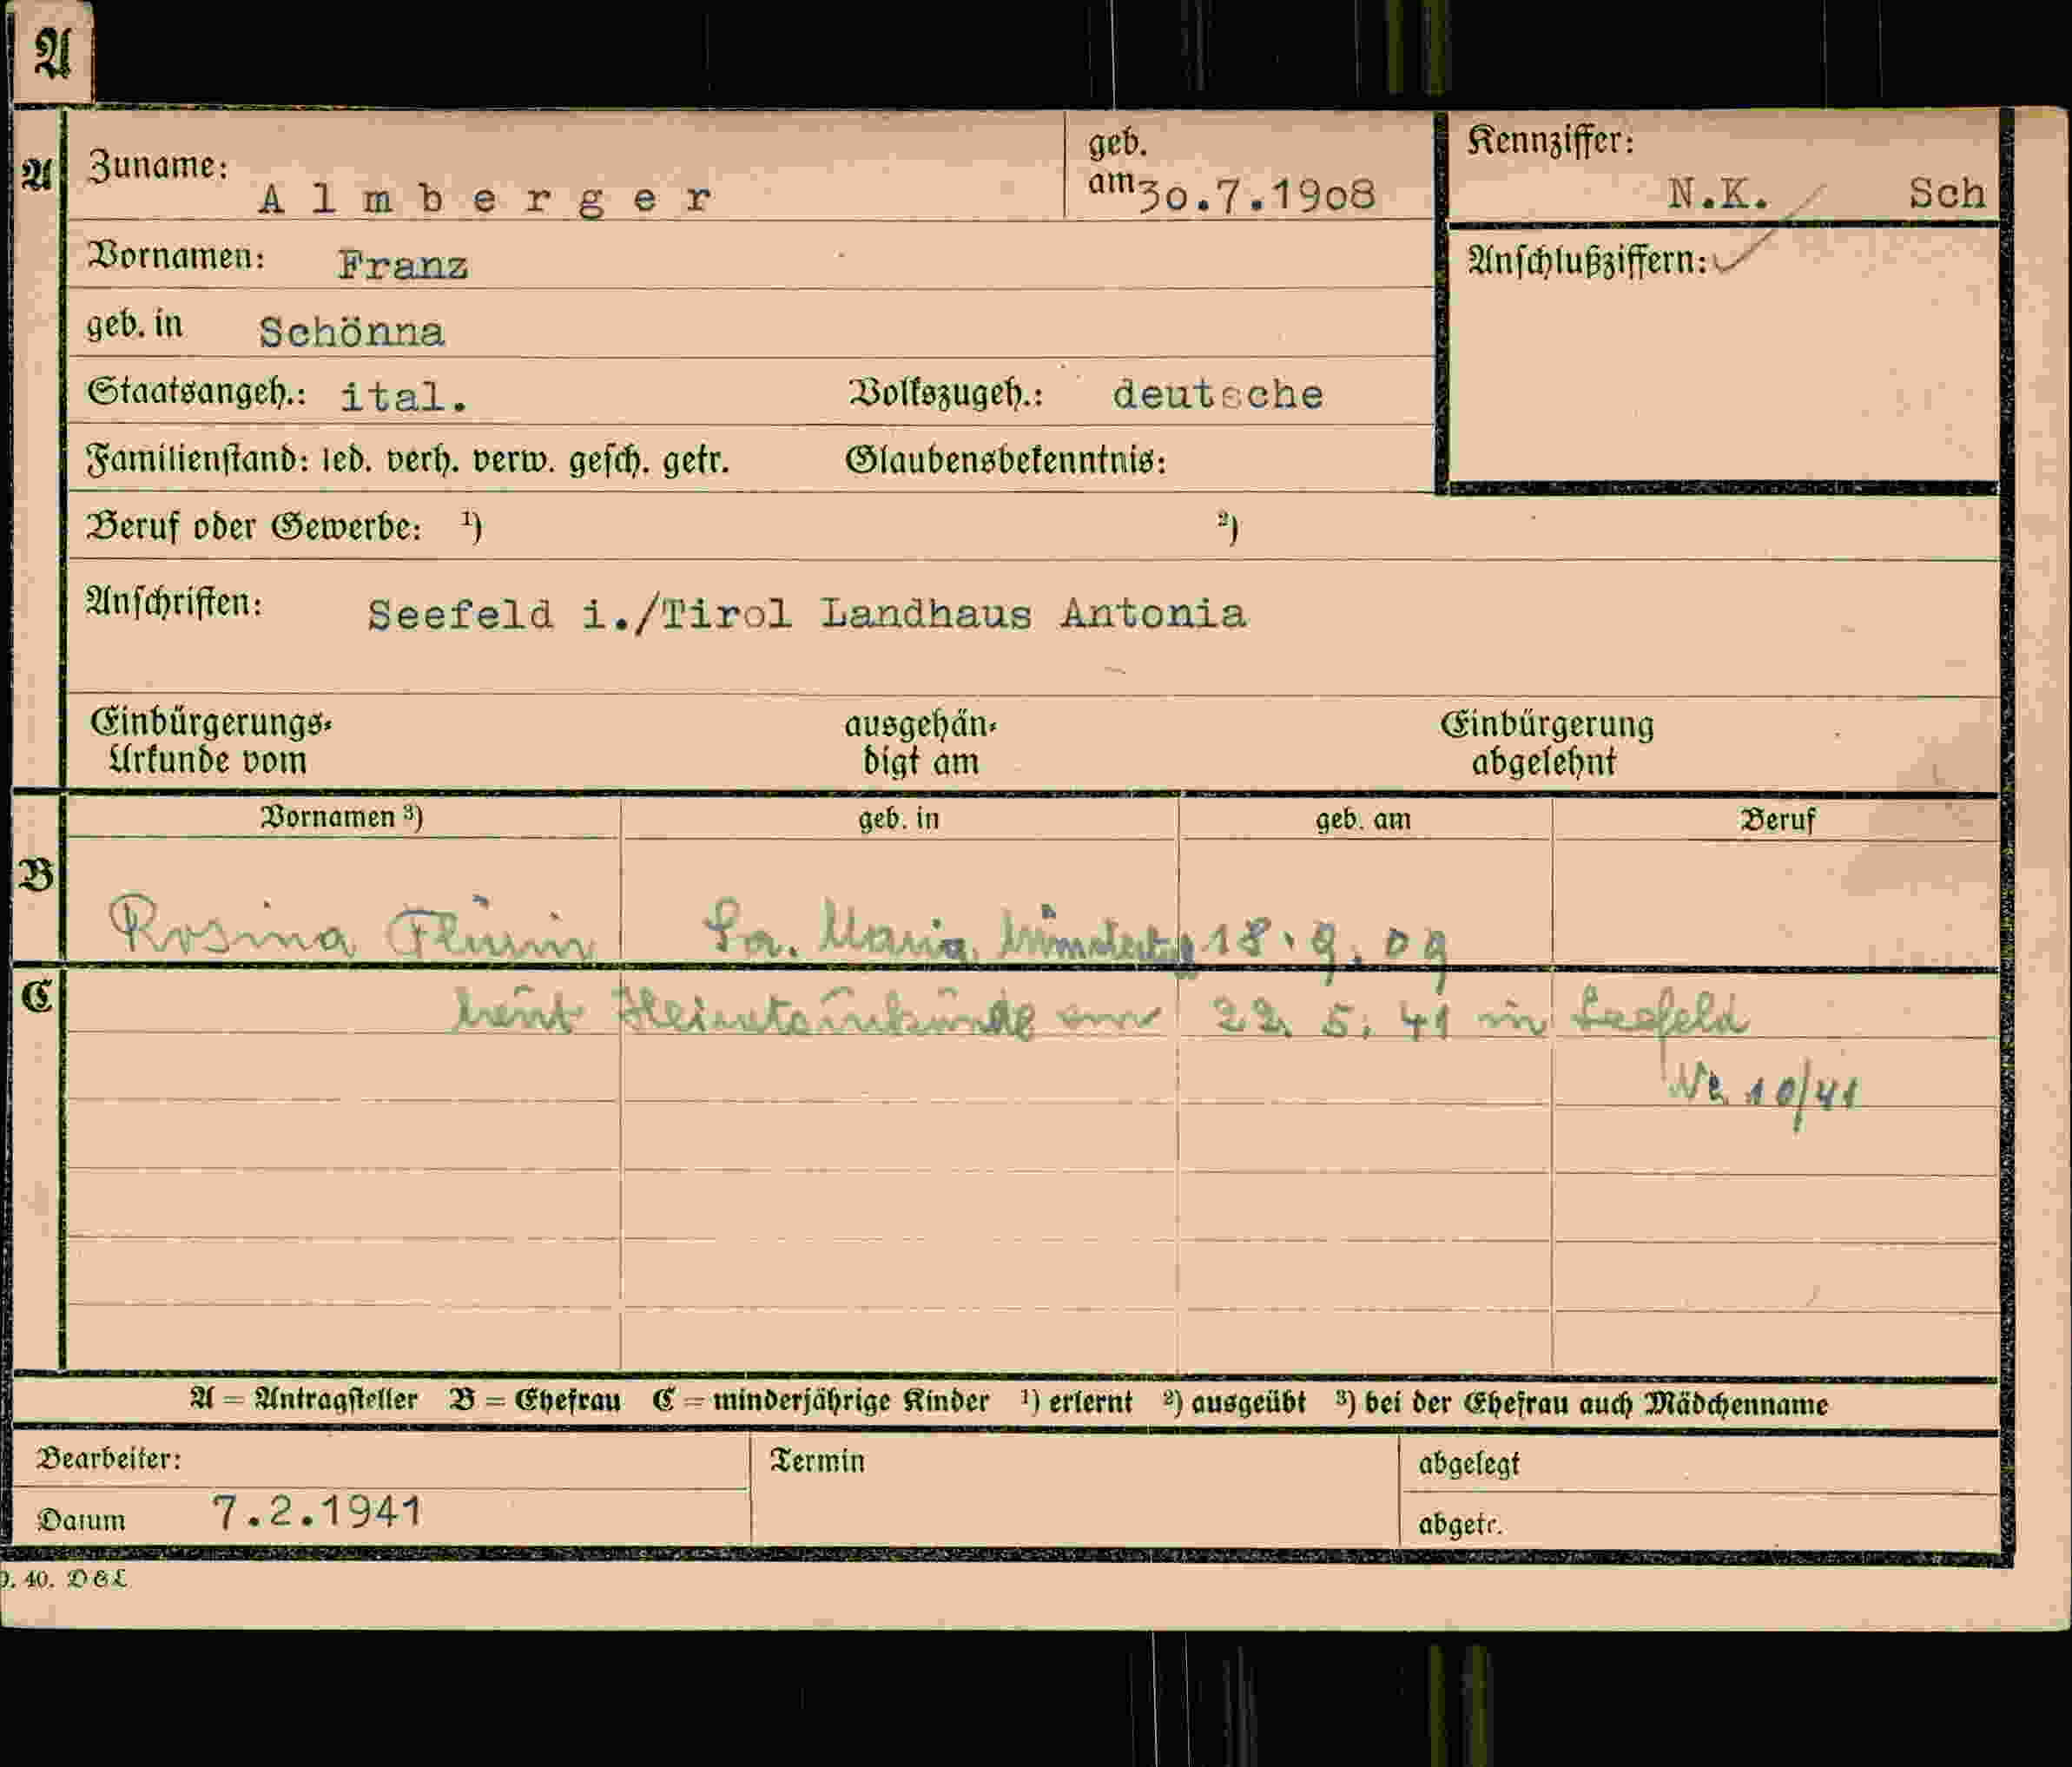 A
A
Zuname: Almberger
geb. am 30.7.1908
Kennziffer: N.K. Sch
Vornamen: Franz
Anschlußziffern:
geb. in Schönna
Staatsangeh.: ital. Volkszugeh.: deutsche
Familienstand: led. verh. verw. gesch. getr. Glaubensbekenntnis:
Beruf oder Gewerbe: ¹) ²)
Anschriften: Seefeld i./Tirol Landhaus Antonia
Einbürgerungs-
Urkunde vom
ausgehän-
digt am
Einbürgerung
abgelehnt
Vornamen ³) geb. in geb. am Beruf
B
Rosina Sa. Maria, 18.9.09
C
am 22. 5. 41 in Seefeld
Nr. 10/41
A = Antragsteller B = Ehefrau C = minderjährige Kinder ¹) erlernt ²) ausgeübt ³) bei der Ehefrau auch Mädchenname
Bearbeiter: Termin abgelegt
Datum 7.2.1941 abgetr.
40. D&L